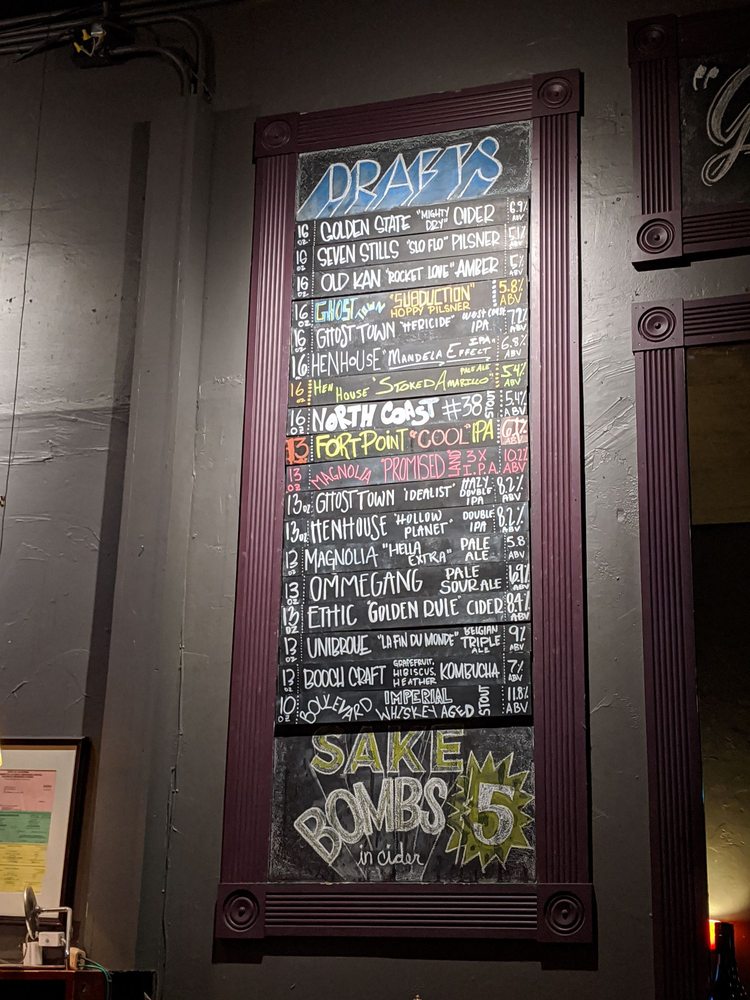 DRAFTS
16 OZ. GOLDEN STATE "MIGHTY DRY" CIDER 6.9% ABV
16 OZ. SEVEN STILLS "SLO FLO" PILSNER 5.1% ABV
16 OZ. OLD KAN "ROCKET LOVE" AMBER 5% ABV
16 OZ GHOST TOWN "SUBDUCTION" HOPPY PILSNER 5.8% ABV
16 OZ GHOST TOWN "HERICIDE" WEST COAST IPA 7.2% ABV
16 HENHOUSE "MANDELA EFFECT" IPA 6.8% ABV
16 OZ HEN HOUSE "STOKED AMARILLO" PALE ALE 5.4% ABV
16 OZ NORTH COAST #38 STOUT 5.4% ABV
13 FORT POINT "COOL" IPA 6.7% ABV
13 OZ MAGNOLIA PROMISED LAND 3X I.P.A 10.2% ABV
13 OZ GHOST TOWN "IDEALIST" HAZY DOUBLE IPA 8.2% ABV
13 OZ HENHOUSE "HOLLOW PLANET" DOUBLE IPA 8.2% ABV
13 OZ MAGNOLIA "HELLA EXTRA" PALE ALE 5.8 ABV
13 OZ OMMEGANG PALE SOUR ALE 6.9% ABV
13 OZ ETHIC "GOLDEN RULE" CIDER 8.4% ABV
13 OZ UNIBROUE "LA FIN DU MONDE" BELGIAN TRIPLE ALE 9% ABV
13 OZ BOOCH CRAFT GRAPEFRUIT HIBISCUS HEATHER KOMBUCHA 7% ABV
10 OZ BOULEVARD IMPERIAL WHISKEY AGED STOUT 11.8% ABV
SAKE
BOMBS 5
in cider